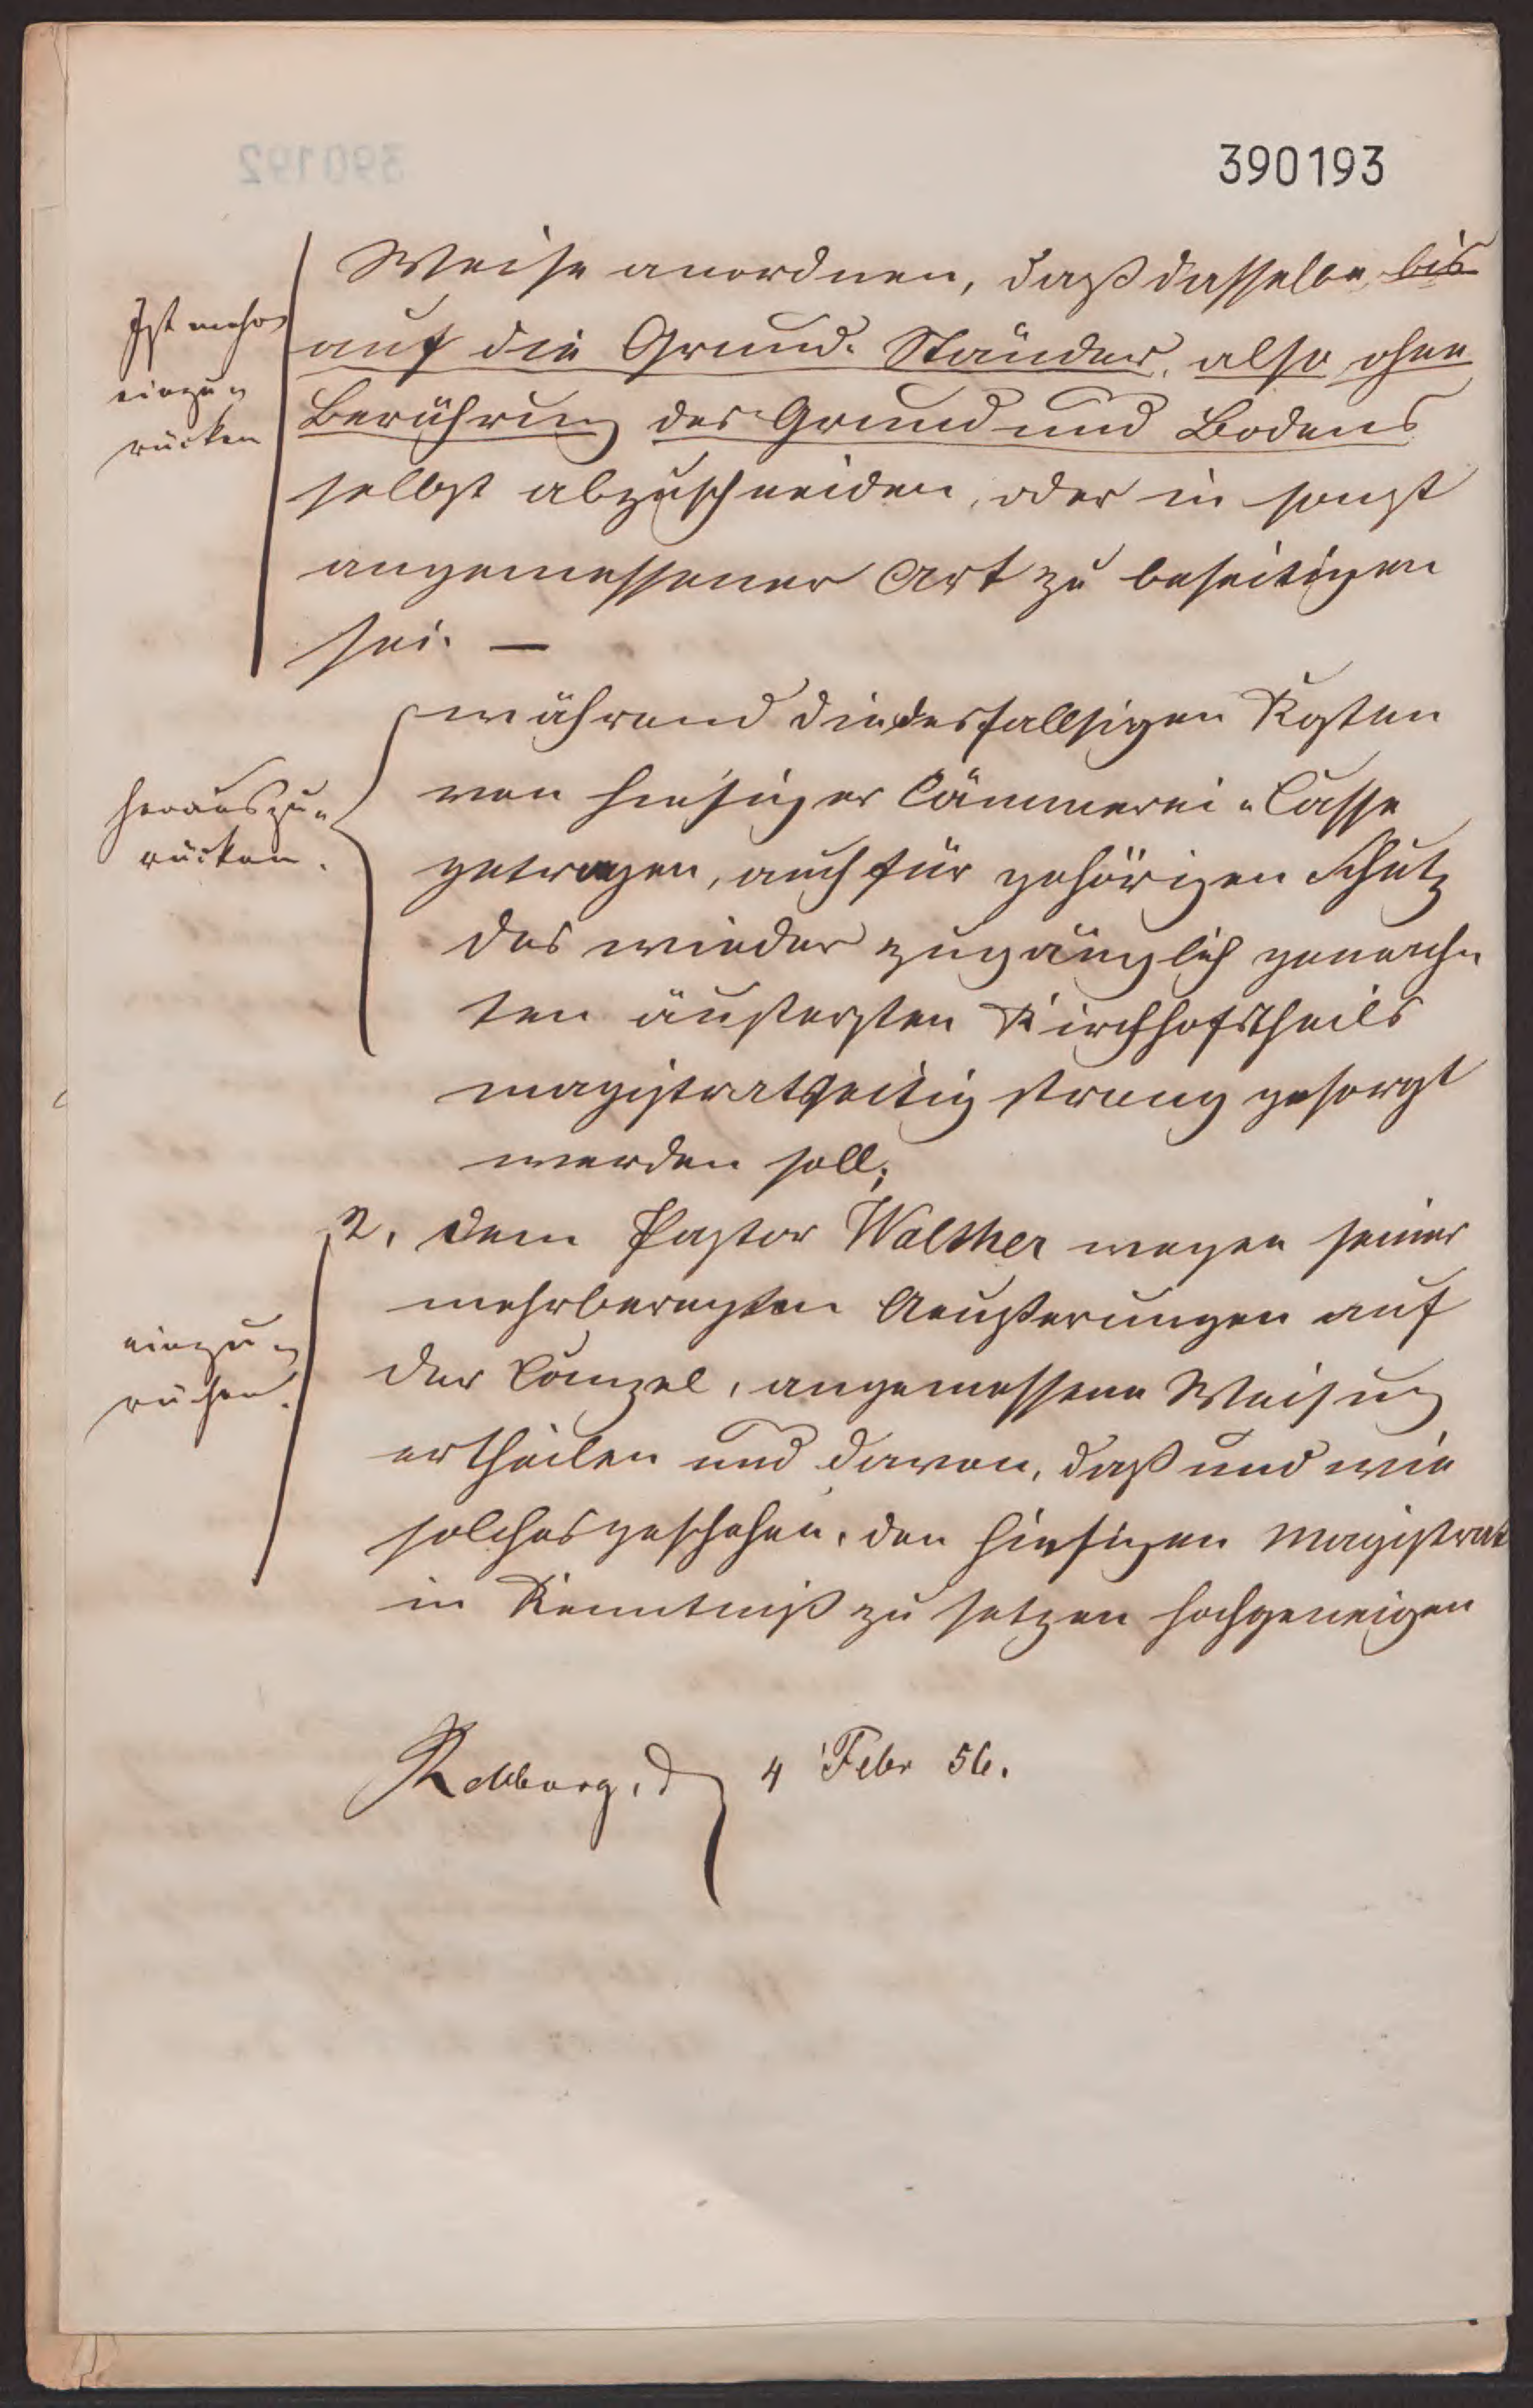 390193
Weise anordnen, daß dasselbe bis
auf die Grund-Ständer, also ohne
Berührung des Grund und Bodens
selbst abzuschneiden, oder in sonst
angemessener Art zu beseitigen
sei. —
Ist mehr
einzu-
rücken
während die desfallsigen Kosten
von hiesiger Cämmerei-Casse
getragen, auch für gehörigen Schutz
des wieder zugänglich gemach-
ten äußersten Kirchhofstheils
magistratsseitig streng gesorgt
werden soll;
herauszu-
rücken.
2, dem Pastor Walther wegen seiner
mehrberegten Aeußerungen auf
der Canzel, angemessene Weisung
ertheilen und davon, daß und wie
solches geschehen, den hiesigen Magistrat
in Kenntniß zu setzen hochgeneigen
einzu-
rücken.
Rehburg, d 4 Febr 56.